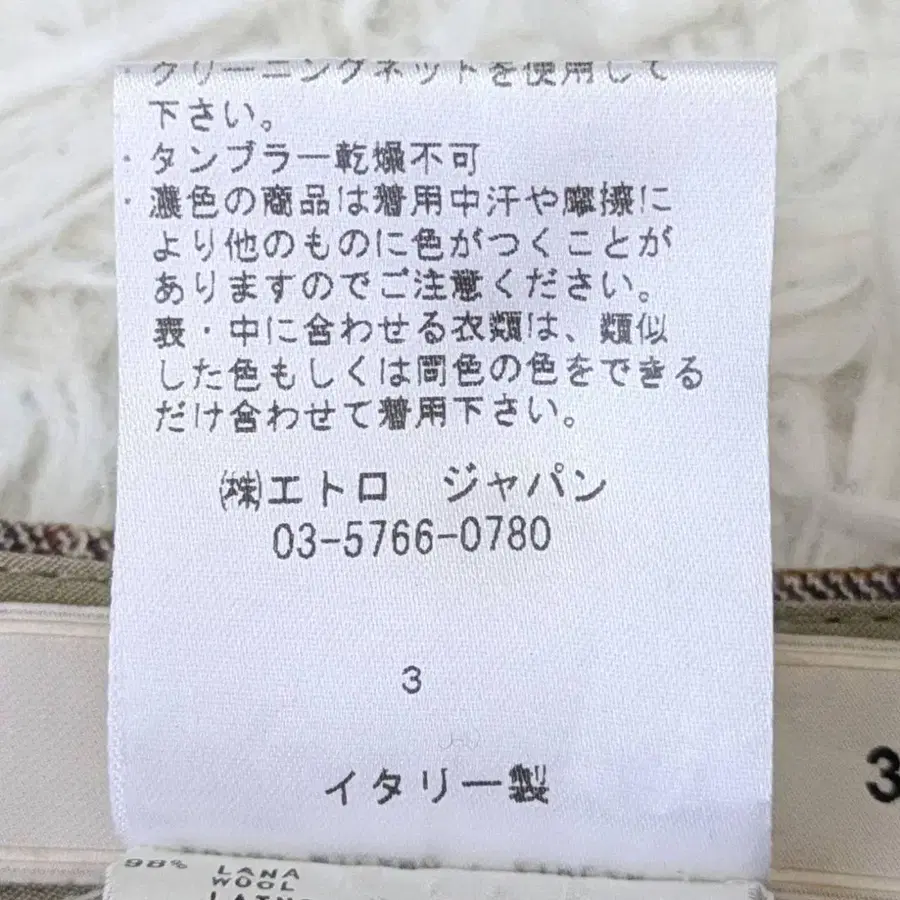 ・クリーニングネットを使用して
下さい。
・タンブラー乾燥不可
・濃色の商品は着用中汗や摩擦に
より他のものに色がつくことが
ありますのでご注意ください。
表・中に合わせる衣類は、類似
した色もしくは同色の色をできる
だけ合わせて着用下さい。
㈱エトロ　ジャパン
03-5766-0780
3
イタリー製
3
98% LANA
WOOL